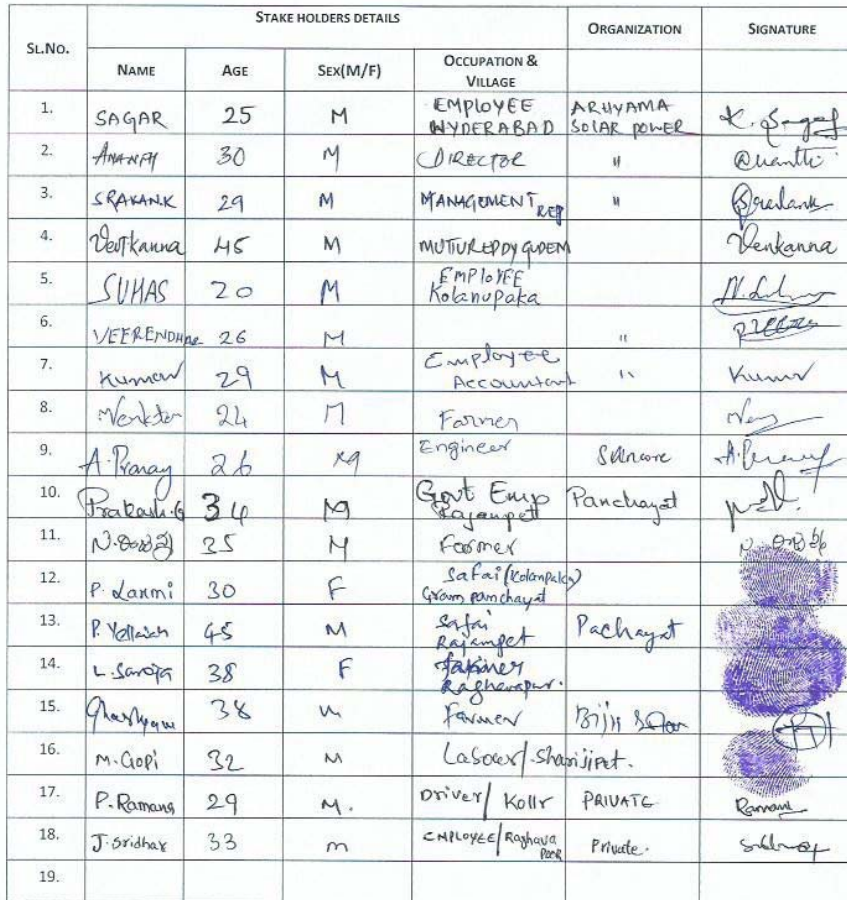 STAKE HOLDERS DETAILS ORGANIZATION SIGNATURE
SL.NO. NAME AGE SEX(M/F) OCCUPATION & VILLAGE
1. SAGAR 25 M EMPLOYEE HYDERABAD ARHYAMA SOLAR POWER K. Sagar
2. 30 M DIRECTOR "
3. SRAVAN.K 29 M MANAGEMENT REP "
4. Venkanna 45 M MUTUREDDY GUDEM Venkanna
5. SUHAS 20 M EMPLOYEE Kolanupaka
6. VEERENDHAR 26 M "
7. Kumar 29 M Employee Accountant " Kumar
8. 24 M Farmer
9. A. Pranay 26 M Engineer
10. Prakash.G 34 M Govt Emp Rajampet Panchayat
11. 35 M Farmer
12. P. Laxmi 30 F Safai (Kolanpaka) Gram panchayat
13. P. Yellaiah 45 M Safai Rajampet Pachayat
14. L. Saroja 38 F Farmer Raghavapur.
15. 38 M Farmer
16. M. Gopi 32 M Labour/Sharijipet.
17. P. Ramana 29 M. Driver/ Kollr PRIVATE
18. J. Sridhar 33 m EMPLOYEE/ Raghava Poor Private.
19.